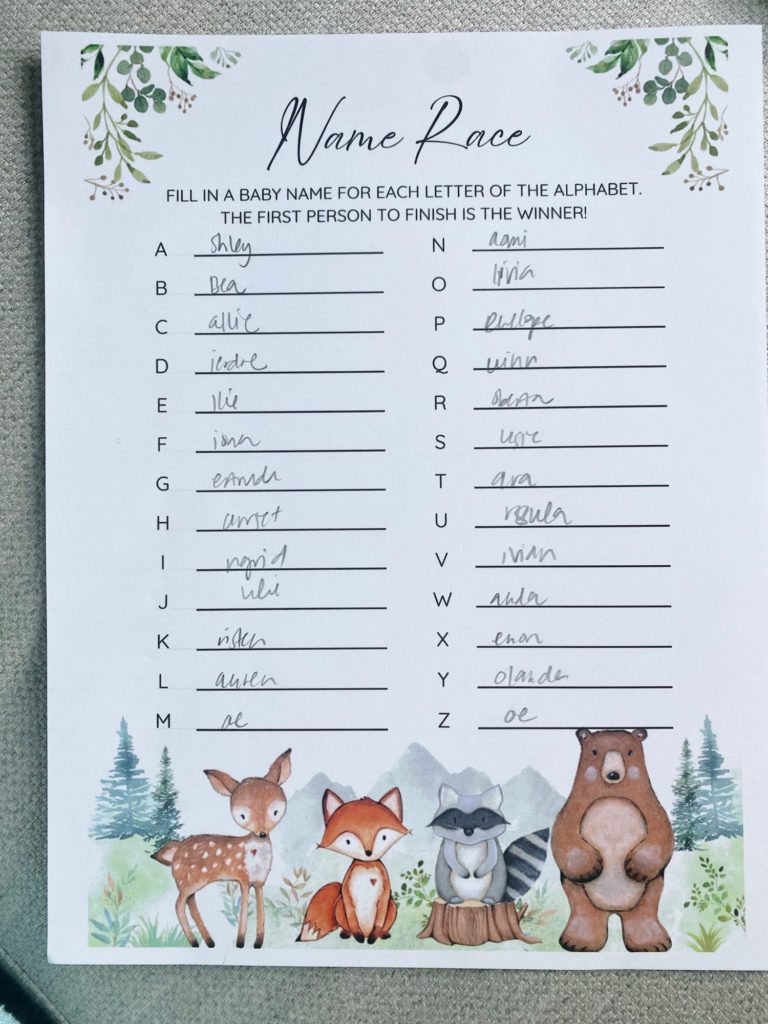 Name Race
FILL IN A BABY NAME FOR EACH LETTER OF THE ALPHABET.
THE FIRST PERSON TO FINISH IS THE WINNER!
A shley
B Bea
C allie
D ierdre
E llie
F iona
G
H arriet
I ngrid
J ulie
K risten
L auren
M ae
N aomi
O livia
P enelope
Q uinn
R oberta
S usie
T ara
U rsula
V ivian
W anda
X enon
Y olanda
Z oe